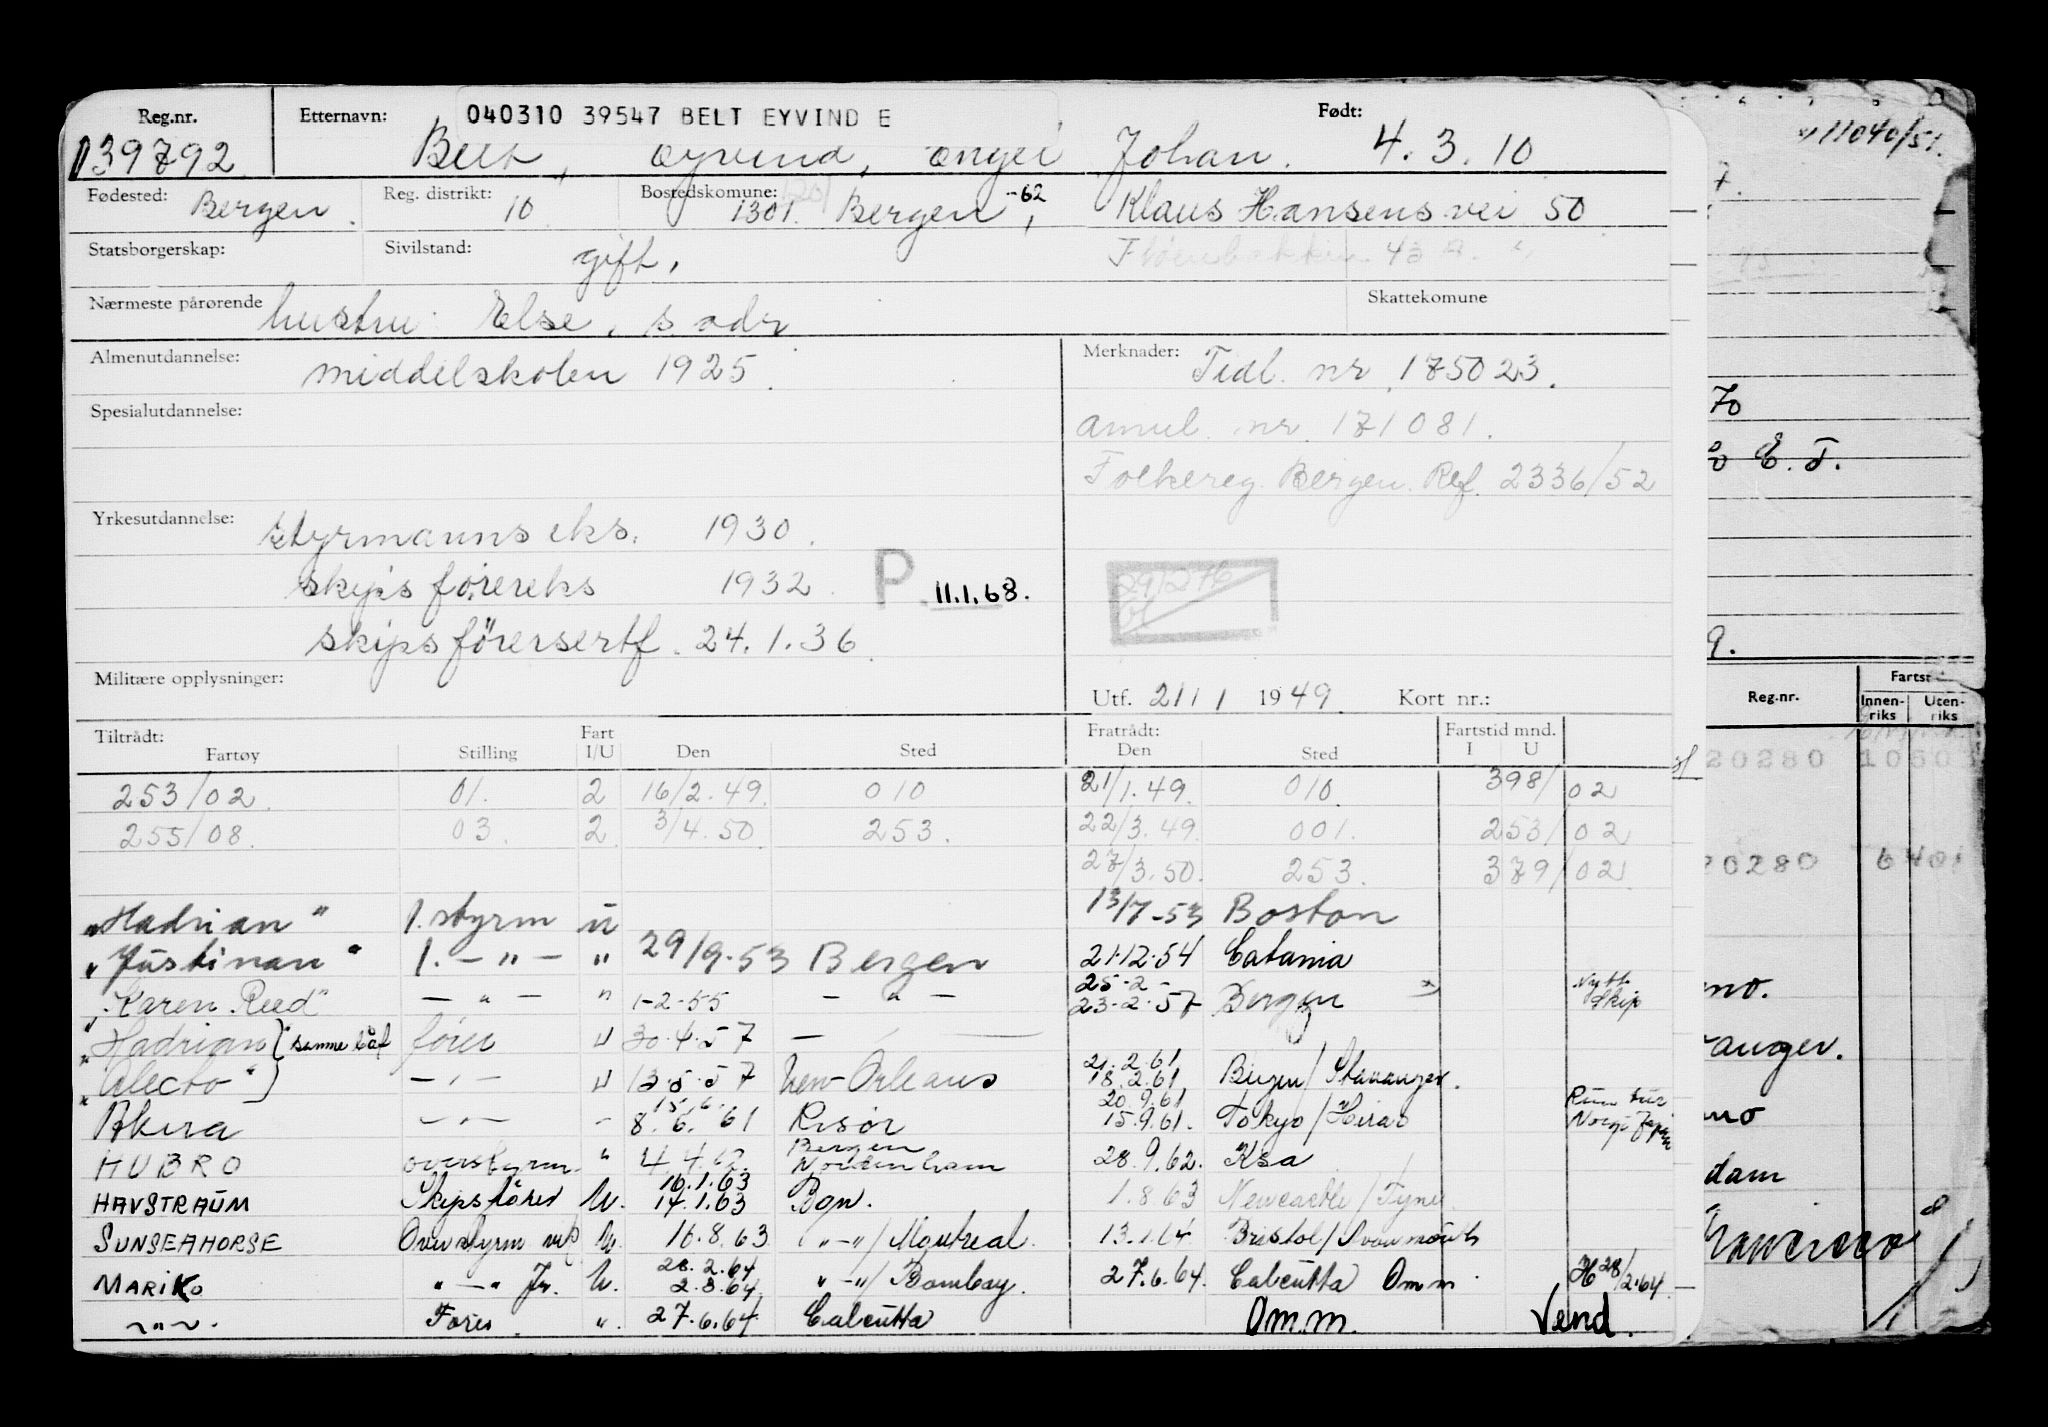 Reg.nr. Etternavn: 040310 39547 BELT EYVIND E Født:
139792 Belt, Øyvind, Engel Johan. 4.3.10
Fødested: Bergen. Reg. distrikt: 10 Bostedskomune: 1301. Bergen -62, Klaus Hansens vei 50
Statsborgerskap: Sivilstand: gift, 43 a.
Nærmeste pårørende hustru: Else, s. adr Skattekomune
Almenutdannelse: middelskolen 1925. Merknader: Tidl. nr. 175023.
Spesialutdannelse: annul. nr. 171081.
Folkereg. Bergen. Ref. 2336/52
Yrkesutdannelse: styrmanns eks. 1930.
skips førereks 1932. P. 11.1.68.
29/276
skipsførersertf. 24.1.36.
Militære opplysninger: Utf. 21/1 1949. Kort nr.:
Tiltrådt: Fart Fratrådt: Fartstid mnd.
Fartøy Stilling I/U Den Sted Den Sted I U
253/02. 01. 2 16/2.49. 010 21/1.49. 010. 398/02
255/08. 03. 2 3/4.50 253. 22/3.49. 001. 253/02
27/3.50. 253. 379/02
"Hadrian" 1. styrm u 13/7-53 Boston
"Justinian" 1. - " - " 29/9-53 Bergen 21.12.54 Catania
"Karen Reed" - " - " 1-2-55 - " - 25-2- 23-2-57 Bergen Nytt Skip
"Hadrian { samme båt fører " 30.4.57
"Alecto" } - " - " 13.5.57 New Orleans 21.2.61 18.2.61 Bergen/Stavanger.
Akera - " - 15.6. 8.6.61 Risør 20.9.61 15.9.61. Tokyo/Hirao
HUBRO overstyrm. " 4.4.62. Bergen Nordenham 28.9.62. Ksa
HAVSTRAUM Skipsfører U. 16.1.63 14.1.63 Bgn. 1.8.63 Newcastle/Tyne
SUNSEAHORSE Overstyrm U. 16.8.63 " - "/Montreal. 13.1.64 Bristol/Avonmouth
MARIKO " - " Jr. U. 28.2.64 2.3.64 " - "/Bombay. 27.6.64. Calcutta Omm. H 28/2.64
~ " ~. Fører. ". 27.6.64 Calcutta Om.m. Vend.
11040/51.
70
E. T.
9.
Reg.nr. Innen-riks Uten-riks
20280 1060
20280 640
anger.
dam